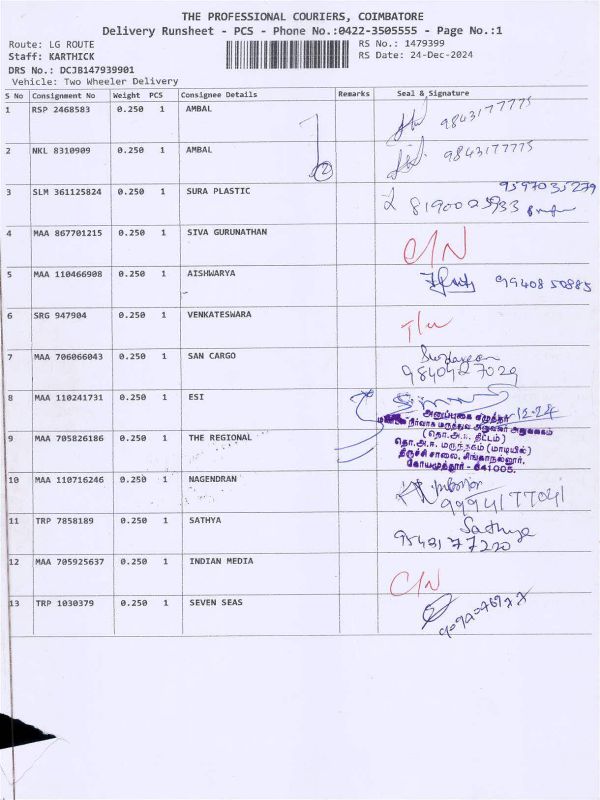 THE PROFESSIONAL COURIERS, COIMBATORE
Delivery Runsheet - PCS - Phone No.:0422-3505555 - Page No.:1
Route: LG ROUTE
RS No.: 1479399
Staff: KARTHICK
RS Date: 24-Dec-2024
DRS No.: DCJB147939901
Vehicle: Two Wheeler Delivery
S No Consignment No Weight PCS Consignee Details Remarks Seal & Signature
1 RSP 2468583 0.250 1 AMBAL 9843177775
2 NKL 8310909 0.250 1 AMBAL 9843177775
2
9597035279
3 SLM 361125824 0.250 1 SURA PLASTIC
4 MAA 867701215 0.250 1 SIVA GURUNATHAN C/N
5 MAA 110466908 0.250 1 AISHWARYA 9940850885
6 SRG 947904 0.250 1 VENKATESWARA
7 MAA 706066043 0.250 1 SAN CARGO
9840427029
8 MAA 110241731 0.250 1 ESI 12-24
அனுப்புகை எழுத்தர்
நிர்வாக மருத்துவ அலுவலர் அலுவலகம்
(தொ.அ.ஈ. திட்டம்)
9 MAA 705826186 0.250 1 THE REGIONAL
தொ.அ.ஈ. மருந்தகம் (மாடியில்)
திருச்சி சாலை, சிங்காநல்லூர்,
கோயமுத்தூர் - 641005.
10 MAA 110716246 0.250 1 NAGENDRAN
9994177041
11 TRP 7858189 0.250 1 SATHYA Sathya
9543177220
12 MAA 705925637 0.250 1 INDIAN MEDIA C/N
13 TRP 1030379 0.250 1 SEVEN SEAS